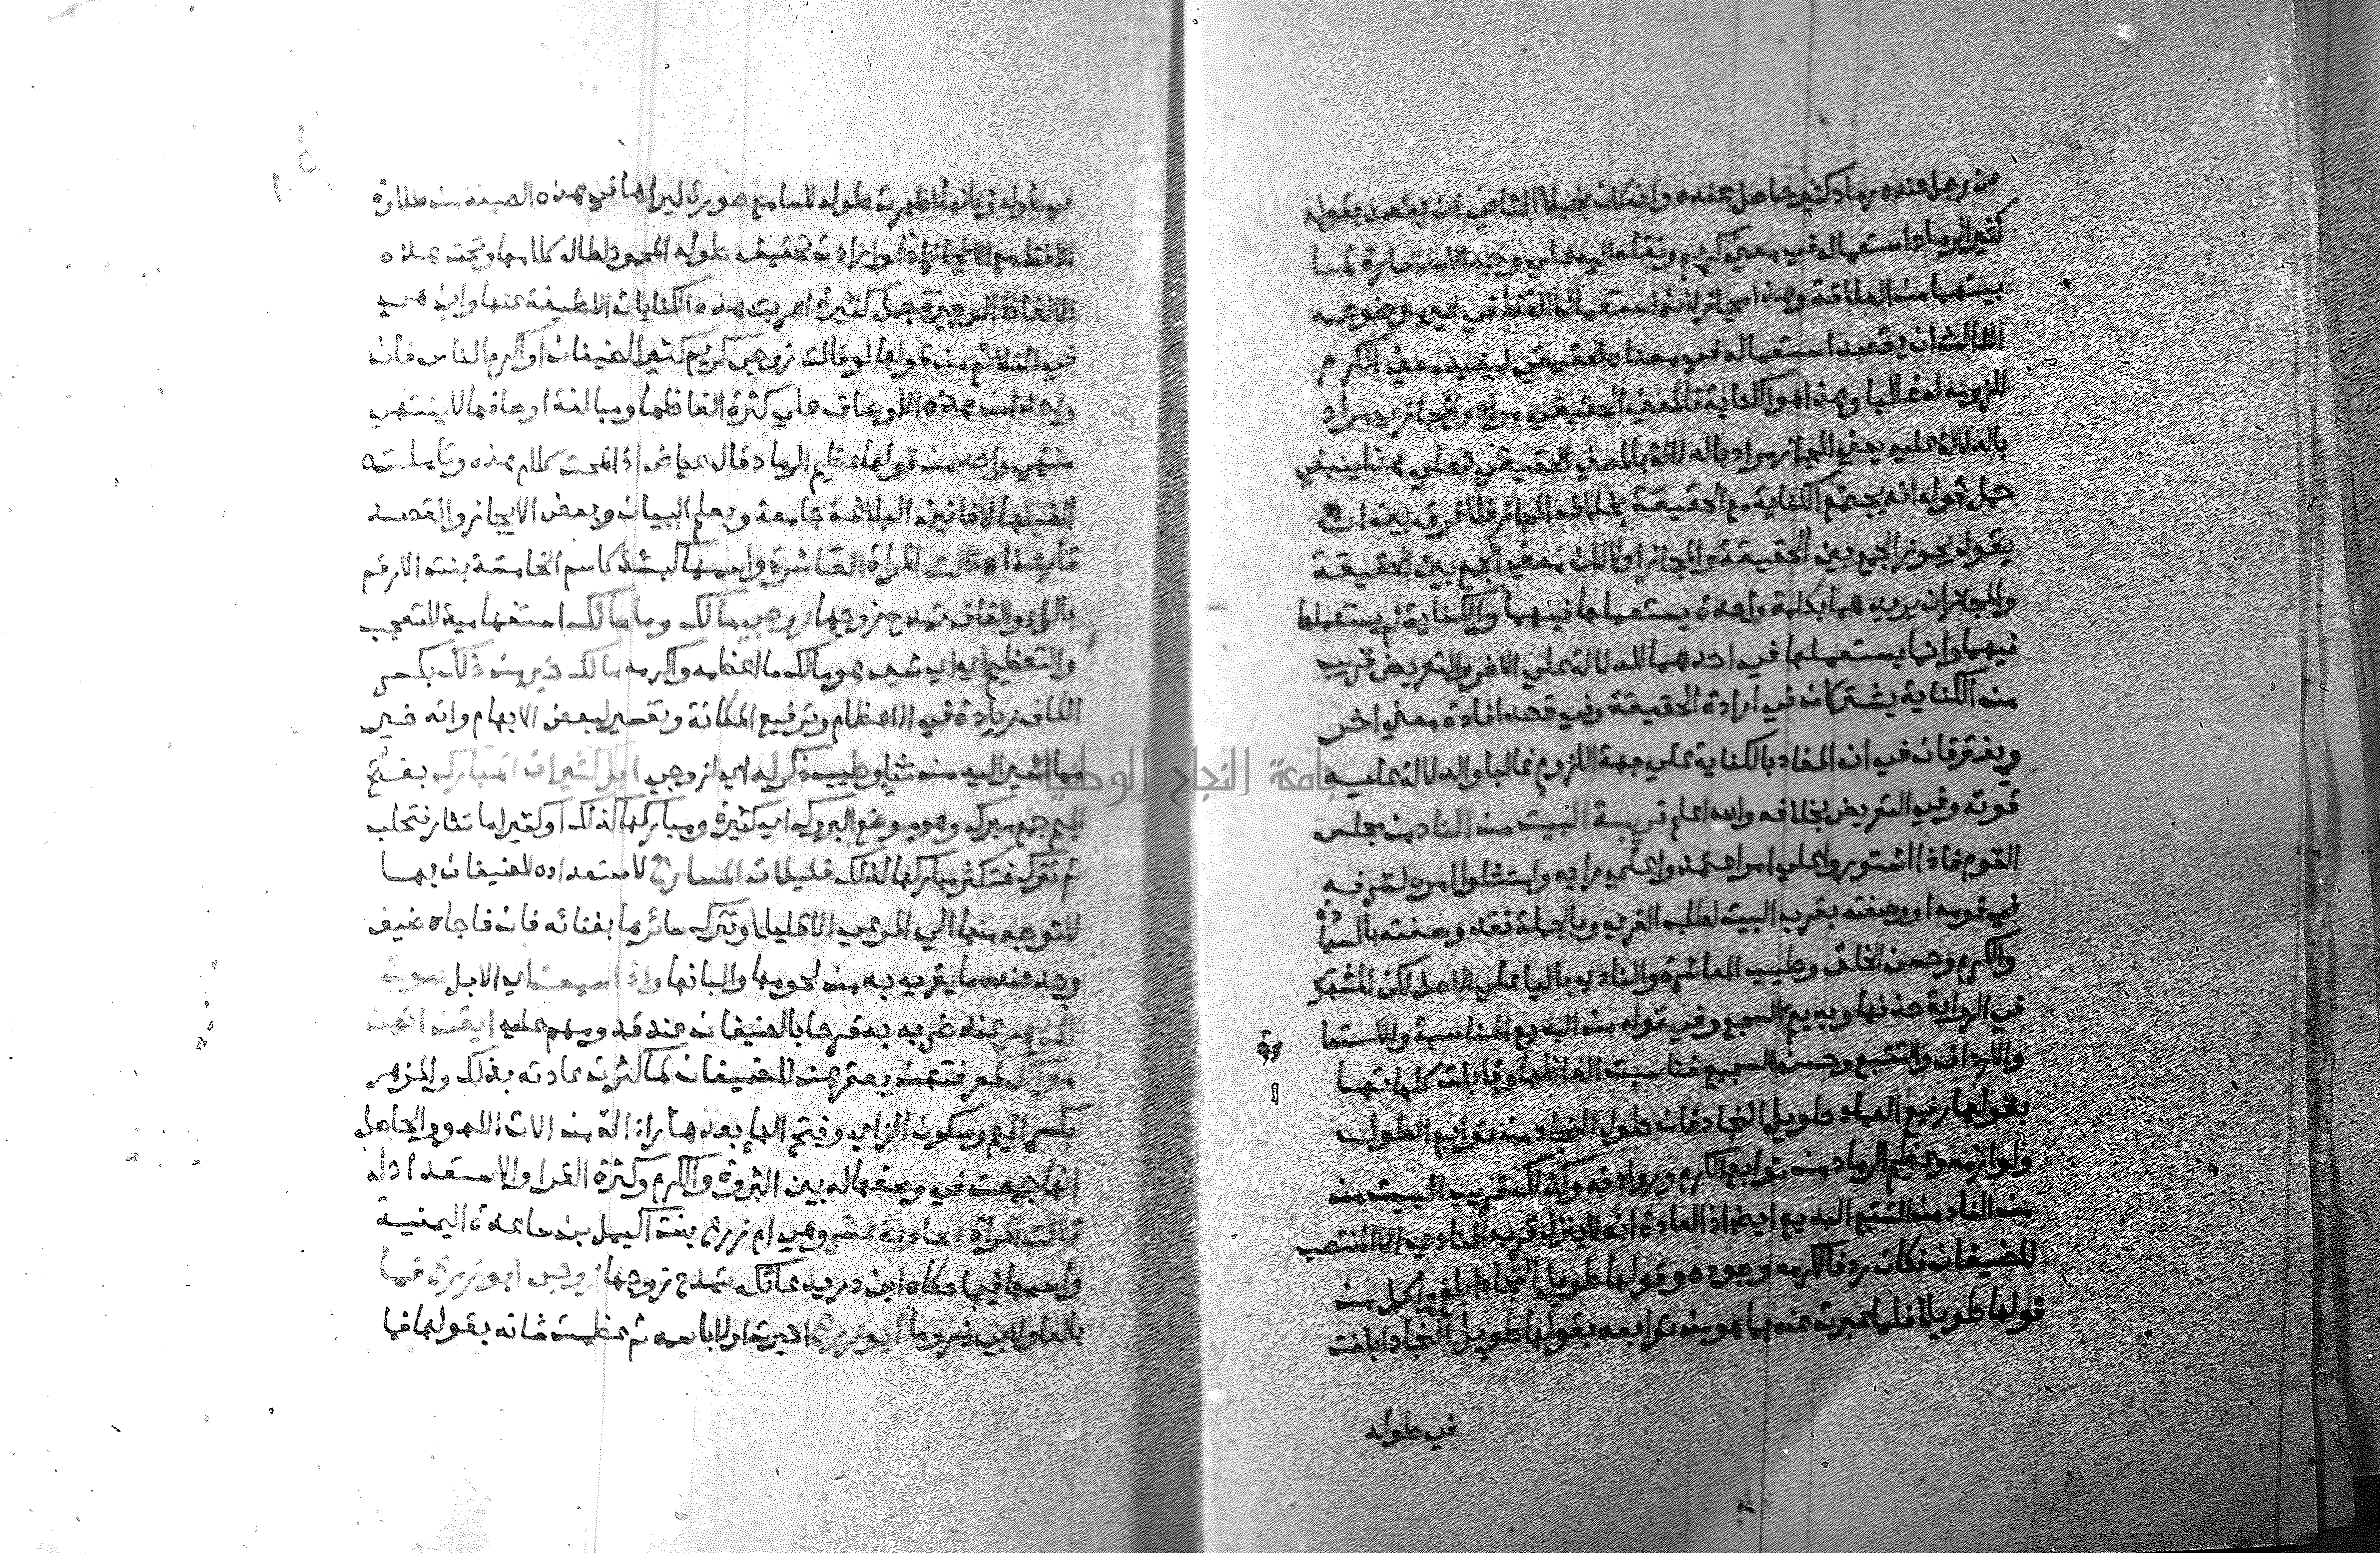 عن رجل عنده رماد كثير حاصل عنده وان كان بخيلا الثاني ان يقصد بقوله
كثير الرماد استعماله في معني كريم ونقله اليه علي وجه الاستعارة لما
بينهما من العلاقة وهذا مجاز لانه استعمال اللفظ في غير موضوعه
الثالث ان يقصد استعماله في معناه الحقيقي ليفيد معني الكرم
للزومه له غالبا وهذا هو الكناية فالمعني الحقيقي مراد والمجازي مراد
بالدلالة عليه يعني المجاز مراد بالدلالة بالمعني الحقيقي فعلي هذا ينبغي
حمل قوله انه يجتمع الكناية مع الحقيقة بخلاف المجاز فلا فرق بين ان
يقول يجوز الجمع بين الحقيقة والمجاز اولا لان معني الجمع بين الحقيقة
والمجاز ان يريد هما بكلمة واحدة يستعملها فيهما والكناية لم يستعملها
فيهما وانما يستعملها في احدهما للدلالة علي الاخر والتعريض قريب
من الكناية يشتركان في ارادة الحقيقة وفي قصد افادة معني اخر
ويفترقان في ان المفاد بالكناية علي جهة اللزوم غالبا والدلالة عليه
قوته وفي التعريض بخلافه والله اعلم قريبة البيت من الناد من مجلس
القوم فاذا اشتوروا علي امر اعتمدوا علي رايه وامتثلوا امره لشرفه
في قومه او وصفته بقرب البيت لطلب القري وبالجملة فقد وصفته بالسيا
دة
والكرم وحسن الخلق وطيب المعاشرة والنادي باليا علي الاصل لكن المشهور
في الرواية حذفها وبه يتم السجع وفي قوله من البديع المناسبة والاستعا
رة
والارداف والتتبع وحسن السجع فناسبت الفاظها وقابلت كلماتها
بقولها رفيع العماد طويل النجاد فان طول النجاد من توابع الطول
ولوازمه وعظيم الرماد من توابع الكرم وروادفه وكذلك قريب البيت من
من الناد من التتبع البديع ايضا اذ العادة انه لا ينزل قرب النادي الا المنتصب
للضيفان فكان ردفا لكرمه وجوده وقولها طويل النجاد ابلغ واكمل من
قولها طويلا فلما عبرت عنه بما هو من توابعه بقولها طويل النجاد ابلغت
في طوله
في طوله فكانها اظهرت طوله للسامع صورة ليراها في هذه الصيغة من طلاوة
اللفظ مع الايجاز اذ لو ارادت تحقيق طوله المحمود لطال كلامها وتحت هذه
الالفاظ الوجيزة جمل كثيرة اعربت هذه الكنايات اللطيفة عنها واين هي
في التلائم من قولها لو قالت زوجي كريم كثير الضيفان او اكرم الناس فان
واحدا من هذه الاوصاف علي كثرة الفاظها ومبالغة اوصافها لا ينتهي
منتهي واحد من قولها عظيم الرماد قال عياض اذا لمحت كلام هذه وتاملته
الفيتها لافانين البلاغة جامعة وبعلم البيان وبعض الايجاز والقصد
قارعة قالت المراة العاشرة واسمها كبشة كاسم الخامسة بنت الارقم
بالراء والقاف تمدح زوجها زوجي مالك وما مالك استفهامية للتعجب
والتعظيم اي اي شي هو مالك ما اعظمه واكرمه مالك خير من ذلك بكسر
الكاف زيادة في الاعظام وترفيع المكانة وتفسير لبعض الابهام وانه خير
مما اشير اليه من ثناء وطيب ذكر له اي لزوجي ابل كثيرات المبارك بفتح
الميم جمع مبرك وهو موضع البروك اي كثيرة ومباركها لذلك او كثيرا ما تثار فتحلب
ثم تترك فتكثر مباركها لذلك قليلات المسارح لاستعداده للضيفان بها
لا توجه منها الي المرعي الا قليلا وتترك سائرها بفنائه فان فاجاه ضيف
وجد عنده ما يقريه به من لحومها والبانها واذا سمعت اي الابل صوت
المزهر عند ضربه به فرحا بالضيفان عند قدومهم عليه ايقن انهن
هوالك لمعرفتهن بعقرهن للضيفان لما كثرت عادته بذلك والمزهر
بكسر الميم وسكون الزاي وفتح الهاء بعدها راء الة من الات اللهو والحاصل
انها جمعت في وصفها له بين الثروة والكرم وكثرة القرا والاستعداد له
قالت المراة الحادية عشر وهي ام زرع بنت اكيمل بن ساعدة اليمنية
واسمها فيما حكاه ابن دريد عاتكة تمدح زوجها زوجي ابو زرع فما
بالفاء ولابي ذر وما ابو زرع اخبرت اولا باسمه ثم عظمت شانه بقولها فما